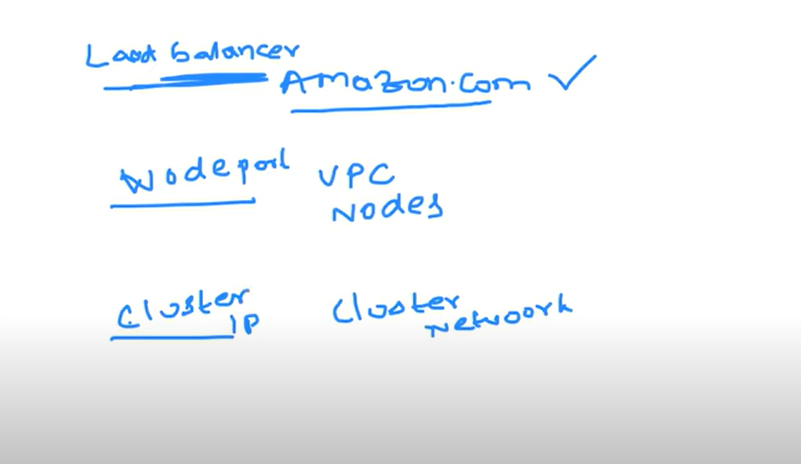 Load balancer
Amazon.com
Nodeport VPC
Nodes
Cluster Cluster
IP Network